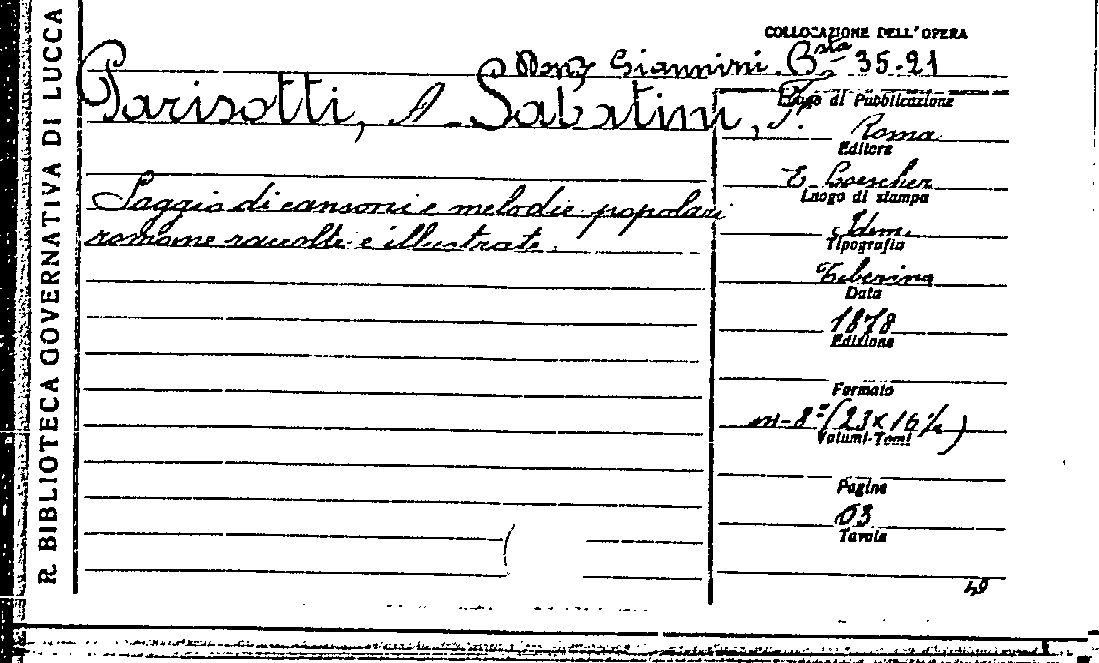 R. BIBLIOTECA GOVERNATIVA DI LUCCA
COLLOCAZIONE DELL'OPERA
Giannini. Bsta 35.21
Parisotti, A. Sabatini, F.
Saggio di canzoni e melodie popolari
romane raccolte e illustrate.
Luogo di Pubblicazione
Roma
Editore
E. Loescher
Luogo di stampa
Idem.
Tipografia
Tiberina
Data
1878
Edizione
Formato
in-8° (23 x 16 ½)
Volumi-Tomi
Pagine
63
Tavole
49